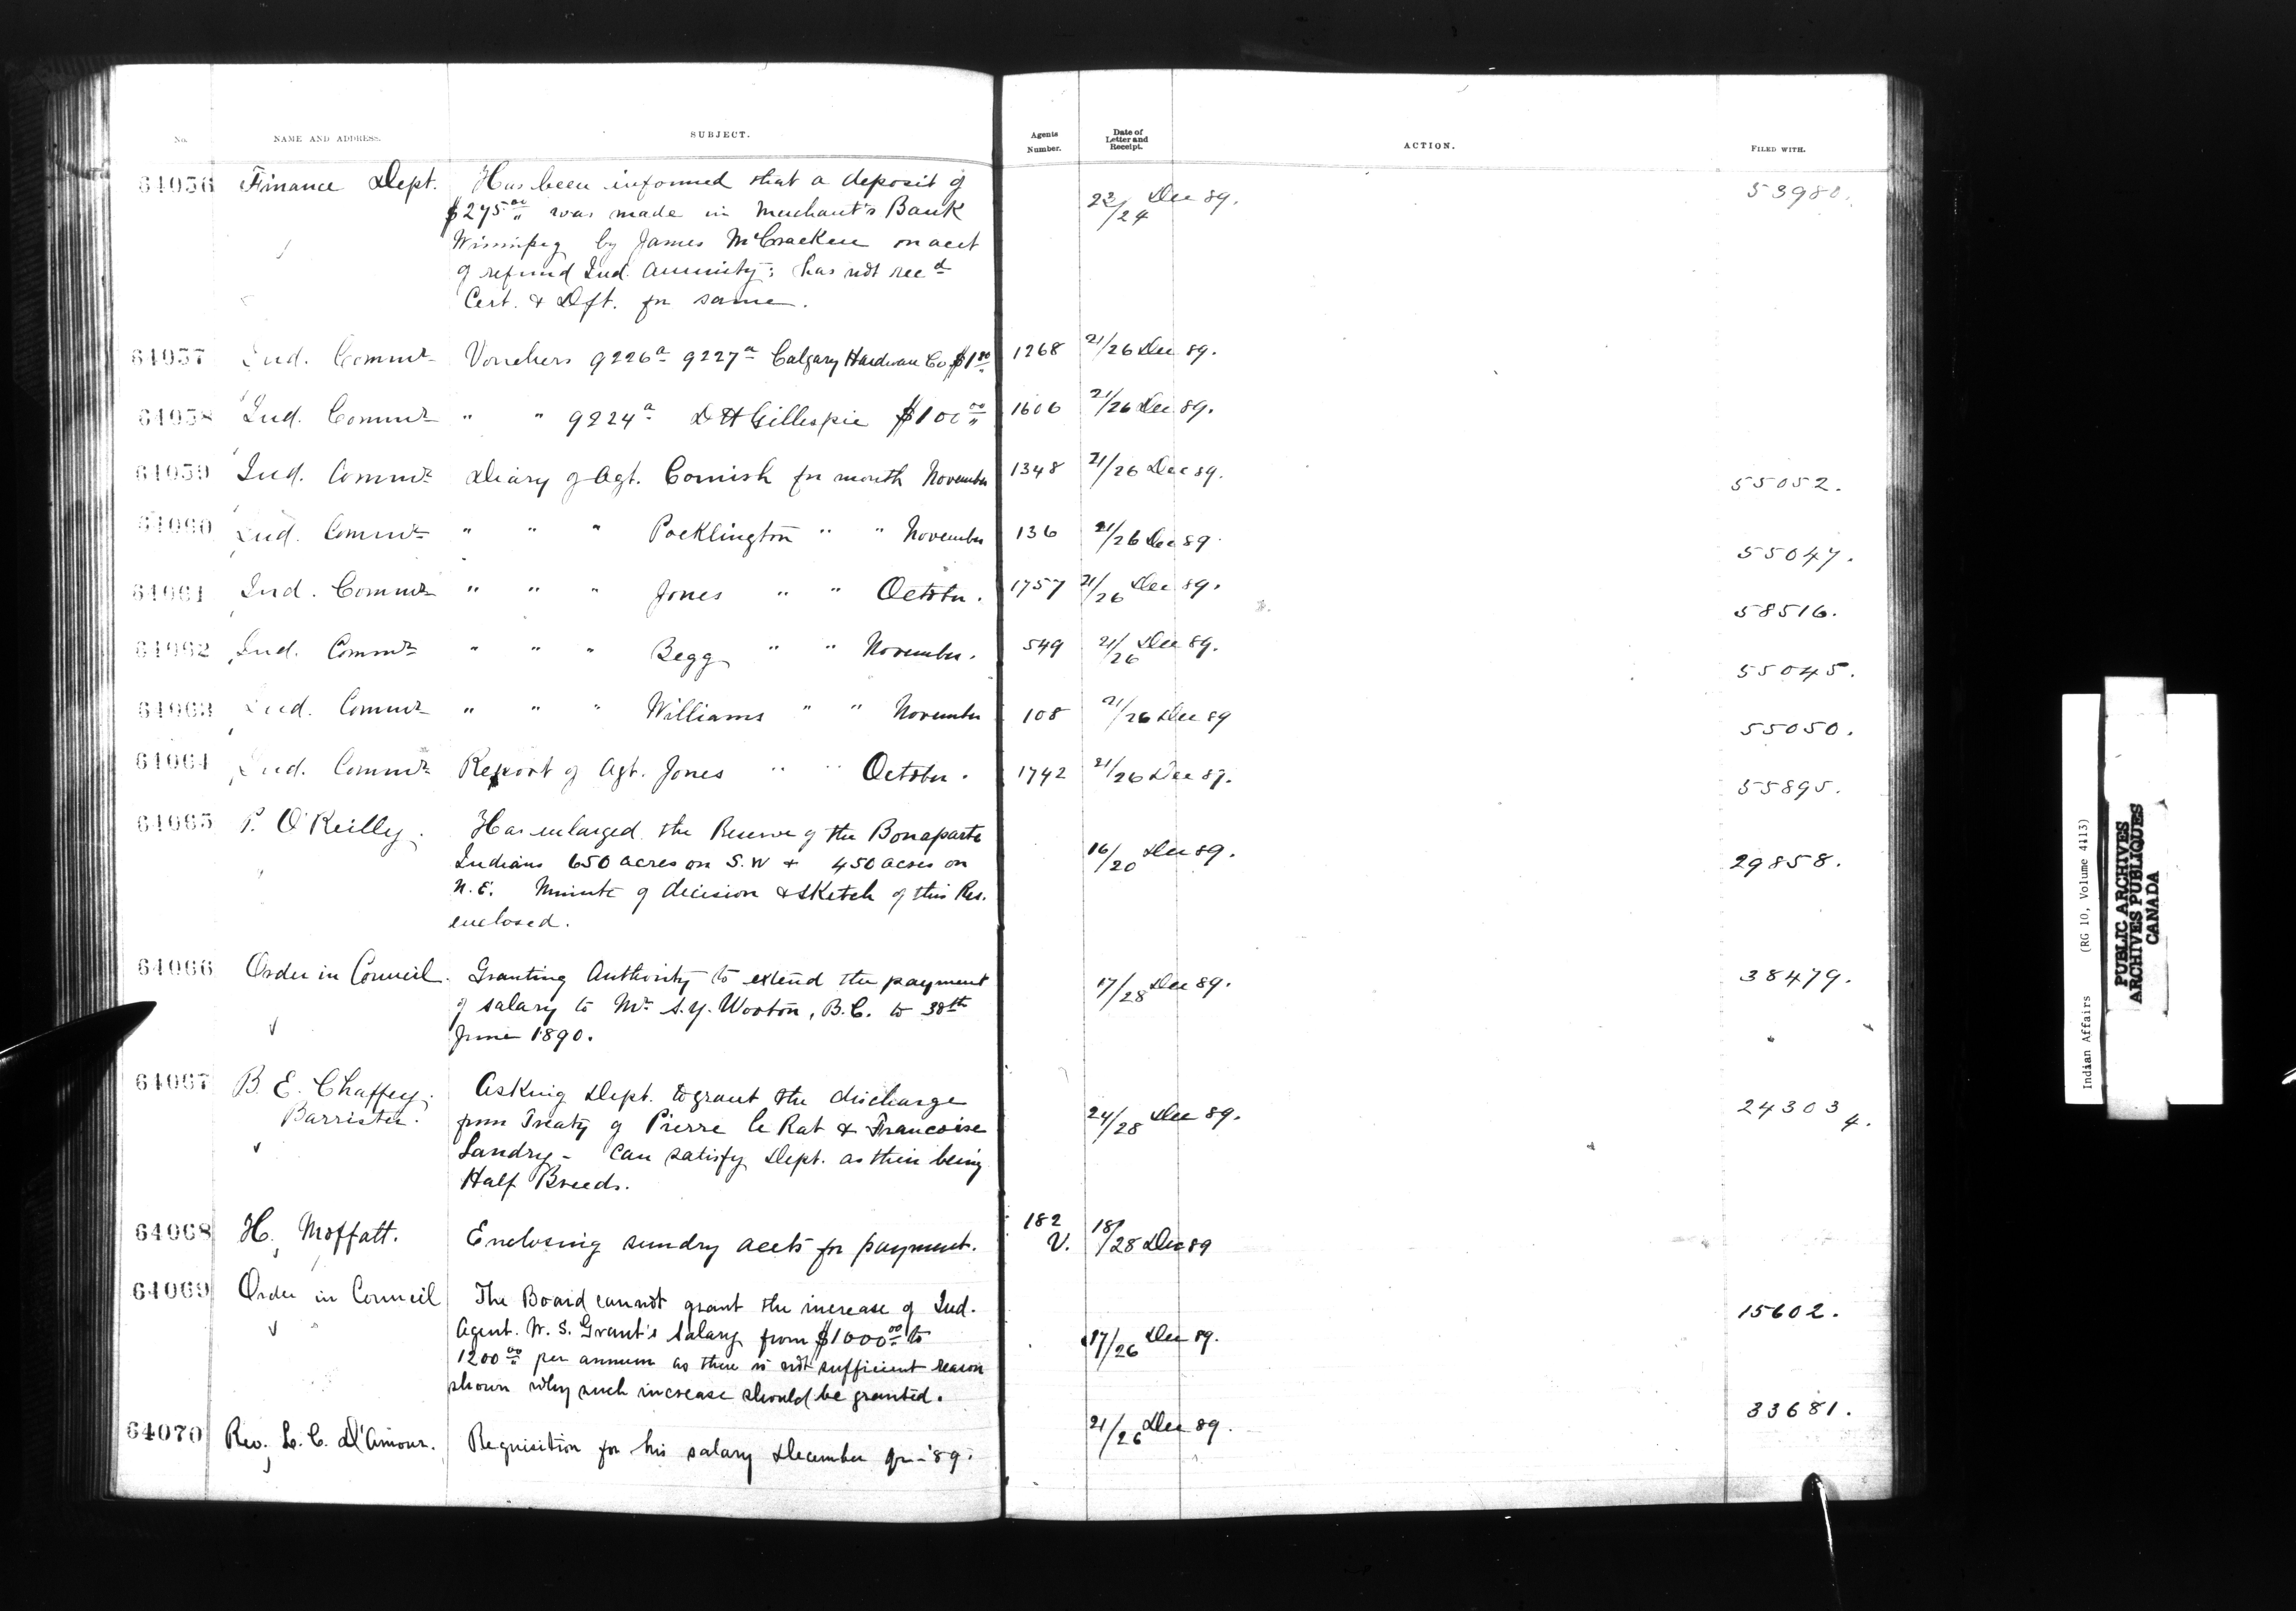 No. NAME AND ADDRESS. SUBJECT. Agents Number. Date of Letter and Receipt. ACTION. FILED WITH.
64056 Finance Dept. Has been informed that a deposit of 23/24 Dec 89. 53980.
$275 00 was made in Merchant's Bank
Winnipeg by James McCracken on acct
of refund Ind. Annuity: has not recd
Cert. & Dft. for same.
64057 Ind. Commr Vouchers 9226a 9227a Calgary Hardware Co $1 80 1268 21/26 Dec 89.
64058 Ind. Commr " " 9224a D H Gillespie $100 00 1606 21/26 Dec 89.
64059 Ind. Commr Diary of Agt. Cornish for month November 1348 21/26 Dec 89. 55052.
64060 Ind. Commr " " " Pocklington " " November 136 21/26 Dec 89. 55047.
64061 Ind. Commr " " " Jones " " October. 1757 21/26 Dec 89. 58516.
64062 Ind. Commr " " " Begg " " November. 549 21/26 Dec 89. 55045.
64063 Ind. Commr " " " Williams " " November 108 21/26 Dec 89 55050.
64064 Ind. Commr Report of Agt. Jones " " October. 1742 21/26 Dec 89. 55895.
64065 P. O'Reilly. Has enlarged the Reserve of the Bonaparte 16/20 Dec 89. 29858.
Indians 650 acres on S.W & 450 acres on
N.E. Minute of decision & sketch of this Res.
enclosed.
64066 Order in Council. Granting Authority to extend the payment 17/28 Dec 89. 38479.
of salary to Mr S.Y. Wooton, B.C. to 30th
June 1890.
64067 B. E. Chaffey, Asking Dept. to grant the discharge 24/28 Dec 89. 24303 4.
Barrister. from Treaty of Pierre le Rat & Francoise
Landry - Can satisfy Dept. as their being
Half Breeds.
64068 H. Moffatt. Enclosing sundry accts for payment. 182 V. 18/28 Dec 89
64069 Order in Council The Board cannot grant the increase of Ind. 17/26 Dec 89. 15602.
Agent. W. S. Grant's Salary from $1000 00 to
1200 00 per annum as there is not sufficient reason
shown why such increase should be granted.
64070 Rev. L. C. D'Amour. Requisition for his salary December qr - '89. 21/26 Dec 89. 33681.
Indian Affairs (RG 10, Volume 4113)
PUBLIC ARCHIVES
ARCHIVES PUBLIQUES
CANADA